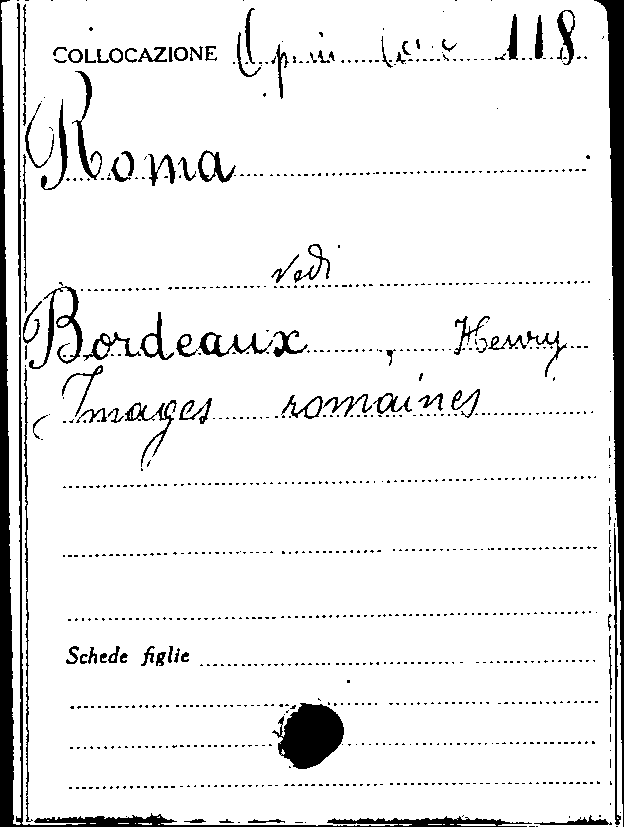 COLLOCAZIONE 118
Roma
vedi
Bordeaux, Henry
Images romaines
Schede figlie